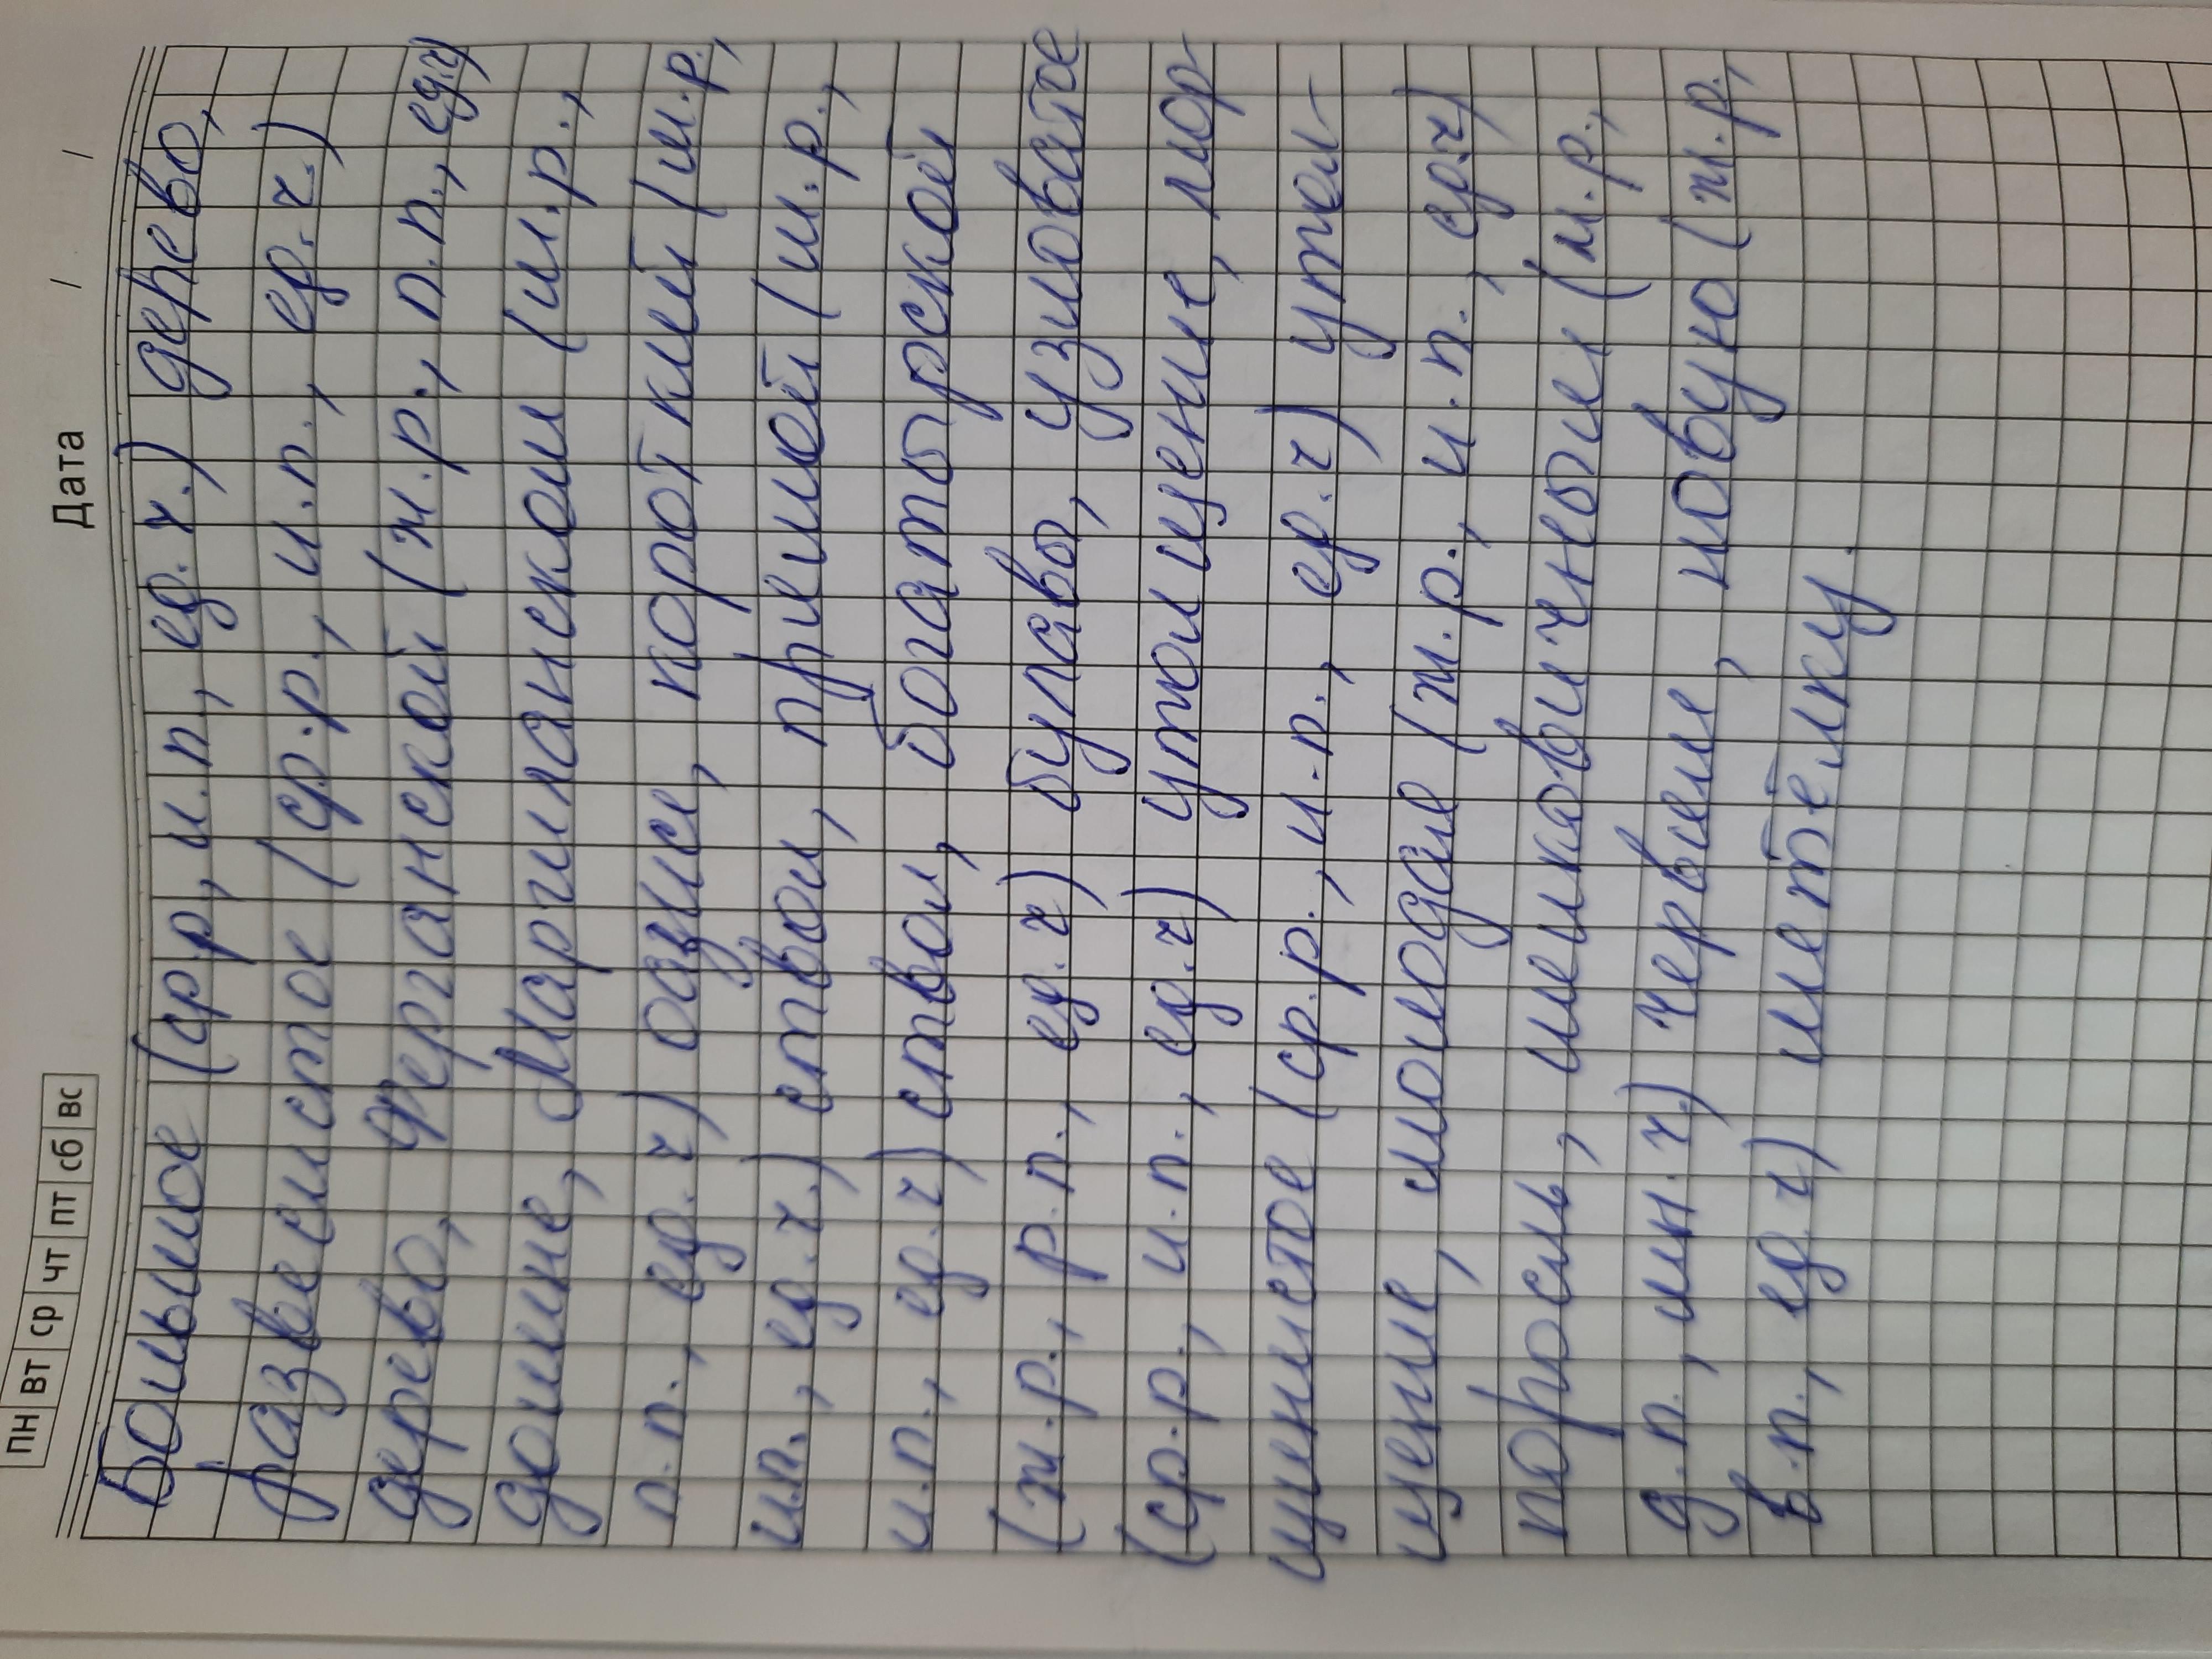 пн вт ср чт пт сб вс
Дата / /
Большое (ср.р, и.п, ед.ч.) дерево,
развесистое (ср.р., и.п., ер.ч.)
дерево, Ферганской (ж.р., п.п., ед.ч)
долине, Маргиланском (м.р.,
п.п., ед.ч) оазисе, короткий (м.р,
и.п., ед.ч.) ствол, прямой (м.р.,
и.п., ед.ч) ствол, богатырской
(ж.р., р.п., ед.ч) булавы, узловатое
(ср.р., и.п., ед.ч) утолщение, мор-
щинистое (ср.р., и.п., ер.ч) утол-
щение, молодая (ж.р., и.п., ер.ч)
поросль, шелковичным (м.р.,
д.п., мн.ч.) червям, новую (ж.р.,
в.п., ед.ч) метёлку.